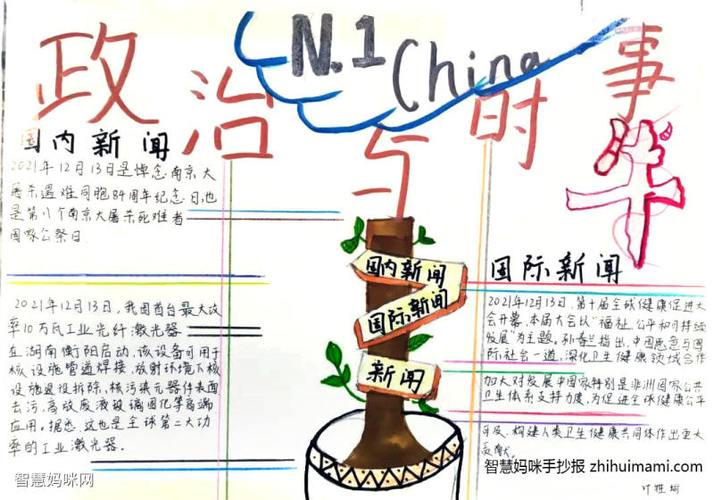 N.1 China
政治与时事
国内新闻
2021年12月13日是悼念南京大
屠杀遇难同胞84周年纪念日,也
是第八个南京大屠杀死难者
国家公祭日
2021年12月13日,我国首台最大功
率10万瓦工业光纤激光器
在湖南衡阳启动,该设备可用于
核设施管道焊接、放射环境下核
设施退役拆除、核污染元器件表面
去污、高放废液玻璃固化等高端
应用。据悉,这也是全球第二大功
率的工业激光器.
国内新闻
国际新闻
新闻
国际新闻
2021年12月13日,第十届全球健康促进大
会开幕,本届大会以"福祉,公平和可持续
发展"为主题。孙春兰指出,中国愿意与国
际社会一道,深化卫生健康领域合作
加大对发展中国家特别是非洲国家公共
卫生体系支持力度,为促进全球健康公平
可及、构建人类卫生健康共同体作出更大
贡献.
智慧妈咪网
智慧妈咪手抄报 zhihuimami.com